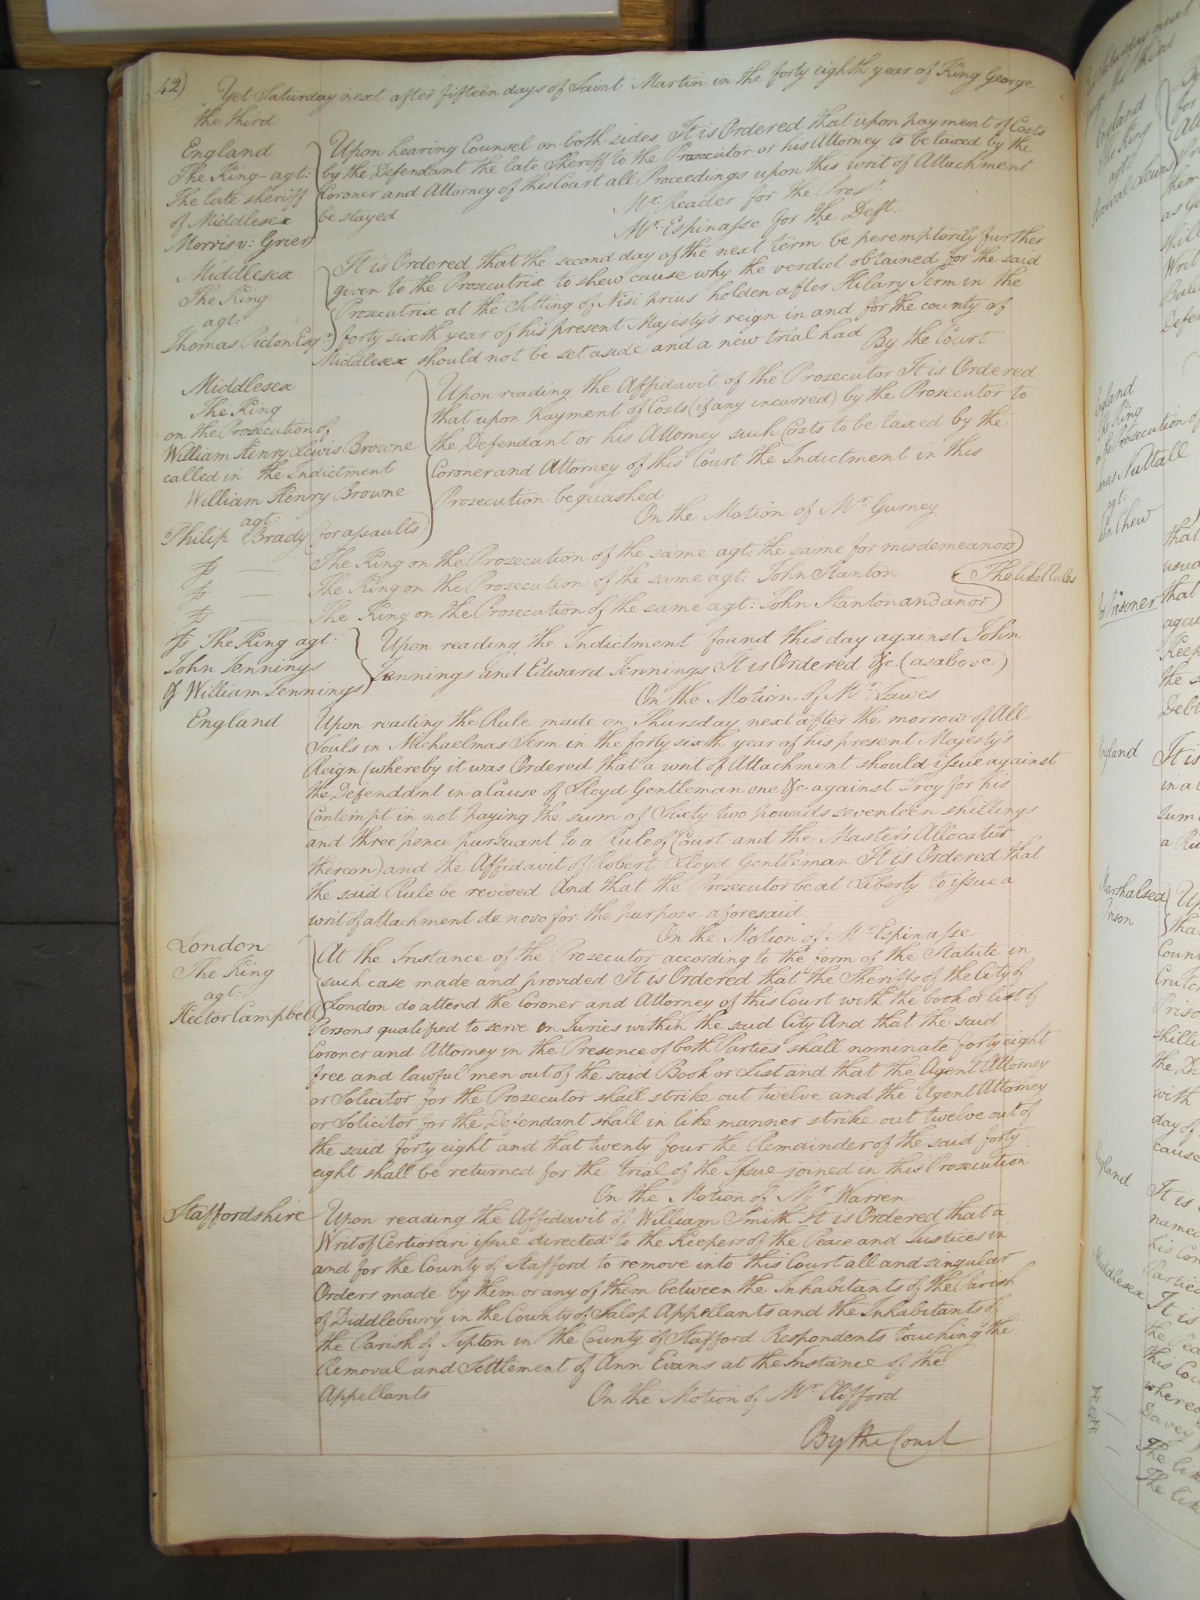 42)
Yet Saturday next after fifteen days of Saint Martin in the forty eighth year of King George
the third
England
The King agt:
The late sheriff
of Middlesex
Morris v: Grier
Upon hearing Counsel on both sides It is Ordered that upon payment of Costs
by the Defendant the late Sheriff to the Prosecutor or his Attorney to be taxed by the
Coroner and Attorney of this Court all Proceedings upon this writ of Attachment
be stayed
Mr. Reader for the Prosr.
Mr. Espinasse for the Deft.
Middlesex
The King
agt:
Thomas Picton Esqr.
It is Ordered that the second day of the next term be peremptorily further
given to the Prosecutrix to shew cause why the verdict obtained for the said
Prosecutrix at the Sitting of Nisi prius holden after Hilary Term in the
forty sixth year of his present Majesty's reign in and for the county of
Middlesex should not be set aside and a new trial had By the Court
Middlesex
The King
on the Prosecution of
William Henry Lewis Browne
called in the Indictment
William Henry Browne
agt:
Philip Brady (for assaults)
Upon reading the Affidavit of the Prosecutor It is Ordered
that upon payment of Costs (if any incurred) by the Prosecutor to
the Defendant or his Attorney such Costs to be taxed by the
Coroner and Attorney of this Court the Indictment in this
Prosecution be quashed
On the Motion of Mr. Gurney
The King on the Prosecution of the same agt: the same for misdemeanor)
The King on the Prosecution of the same agt: John Stanton
The like Rules
The King on the Prosecution of the same agt: John Stanton and anor)
The King agt:
John Jennings
& William Jennings
Upon reading the Indictment found this day against John
Jennings and Edward Jennings It is Ordered &c (as above)
On the Motion of Mr. Lawes
England
Upon reading the Rule made on Thursday next after the morrow of All
Souls in Michaelmas Term in the forty sixth year of his present Majesty's
Reign (whereby it was Ordered that a writ of Attachment should issue against
the Defendant in a Cause of Lloyd Gentleman one &c against Troy for his
Contempt in not paying the sum of Sixty two pounds seventeen shillings
and three pence pursuant to a Rule of Court and the Master's Allocatur
thereon) and the Affidavit of Robert Lloyd Gentleman It is Ordered that
the said Rule be revived And that the Prosecutor be at Liberty to issue a
writ of attachment de novo for the purpose aforesaid
On the Motion of Mr. Espinasse
London
The King
agt:
Hector Campbell
At the Instance of the Prosecutor according to the form of the Statute in
such case made and provided It is Ordered that the Sheriffs of the City of
London do attend the Coroner and Attorney of this Court with the book or list of
Persons qualified to serve on Juries within the said City And that the said
Coroner and Attorney in the Presence of both Parties shall nominate forty eight
free and lawful men out of the said Book or List and that the Agent Attorney
or Solicitor for the Prosecutor shall strike out twelve and the Agent Attorney
or Solicitor for the Defendant shall in like manner strike out twelve out of
the said forty eight and that twenty four the Remainder of the said forty
eight shall be returned for the trial of the Issue joined in this Prosecution
On the Motion of Mr. Warren
Staffordshire
Upon reading the Affidavit of William Smith It is Ordered that a
Writ of Certiorari issue directed to the Keepers of the Peace and Justices in
and for the County of Stafford to remove into this Court all and singular
Orders made by them or any of them between the Inhabitants of the Parish
of Diddlebury in the County of Salop Appellants and the Inhabitants of
the Parish of Tipton in the County of Stafford Respondents touching the
Removal and Settlement of Ann Evans at the Instance of the
Appellants
On the Motion of Mr. Clifford
By the Court